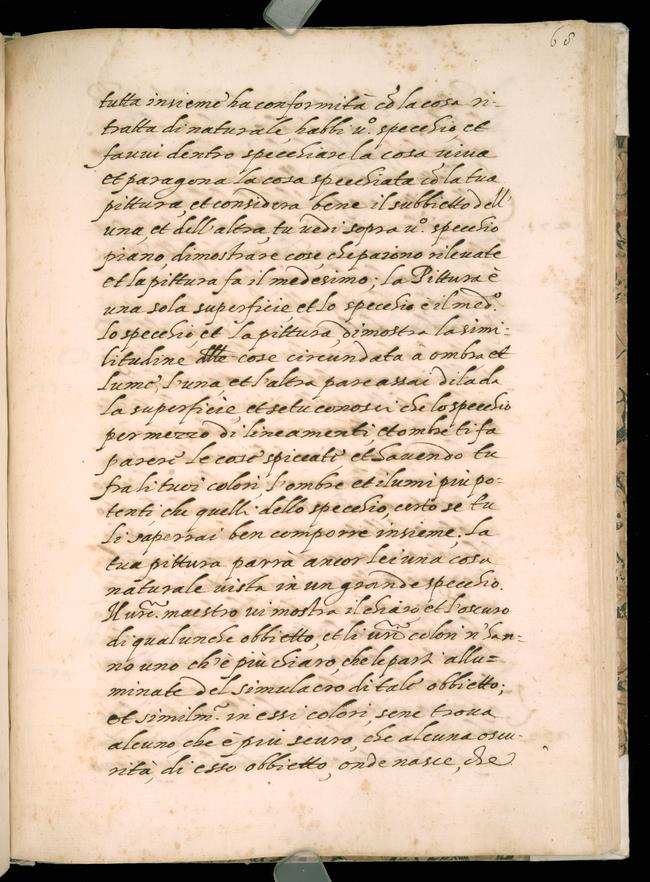 68
tutta insieme ha conformità cõ la cosa ri-
tratta di naturale, habbi uº specchio et
fauui dentro specchiare la cosa uiua
et paragona la cosa specchiata cõ la tua
pittura, et considera bene il subbietto dell'
una, et dell'altra, tu uedi sopra uº specchio
piano, dimostrare cose, che paiono rileuate
et la pittura fa il medesimo; la Pittura è
una sola superficie, et lo specchio è il medº.
lo specchio et la pittura dimostra la simi-
litudine alle cose circundata a ombra et
lume, l'una, et l'altra pare assai di la da
la superficie, et se tu conosci che lo specchio
per mezzo di lineamenti, et ombre ti fa
parere le cose spiccate, et hauendo tu
fra li tuoi colori, l'ombre et i lumi più po-
tenti, che quelli dello specchio, certo se tu
li saperrai ben comporre insieme, la
tua pittura parrà ancor lei una cosa
naturale uista in un grande specchio.
Il urõ. maestro ui mostra il chiaro et l'oscuro
di qualunche obbietto, et li urĩ colori n'han-
no uno ch'è più chiaro, che le parti allu=
minate del simulacro di tale obbietto;
et similmẽ. in essi colori, se ne troua
alcuno, che è più scuro, che alcuna oscu-
rità, di esso obbietto, onde nasce, che